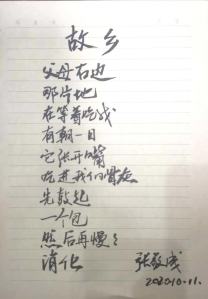 故乡
父母右边
那片地
在等着吃我
有朝一日
它张开嘴
吃进我们骨灰
先鼓起
一个包
然后再慢慢
消化
张敬成
2020.10.11.